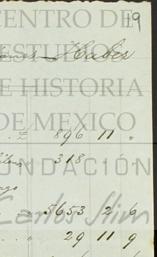 19
CENTRO DE
ESTUDIOS
Haber
E HISTORIA
DE MEXICO
896 11 "
318 " "
FUNDACIÓN
Carlos Slim
5653 2 6
29 11 9